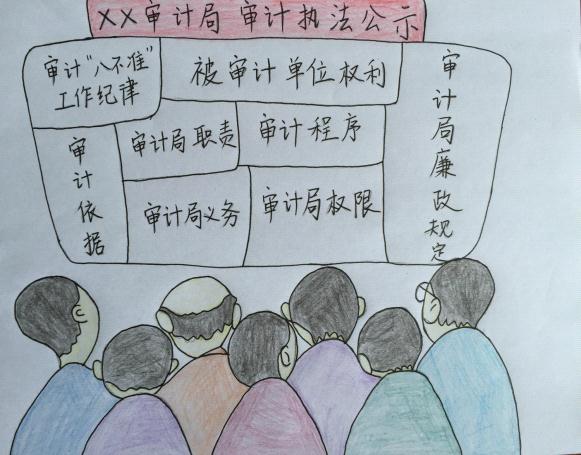 XX审计局 审计执法公示
审计“八不准”
工作纪律
被审计单位权利
审计局廉政规定
审计依据
审计局职责
审计程序
审计局义务
审计局权限